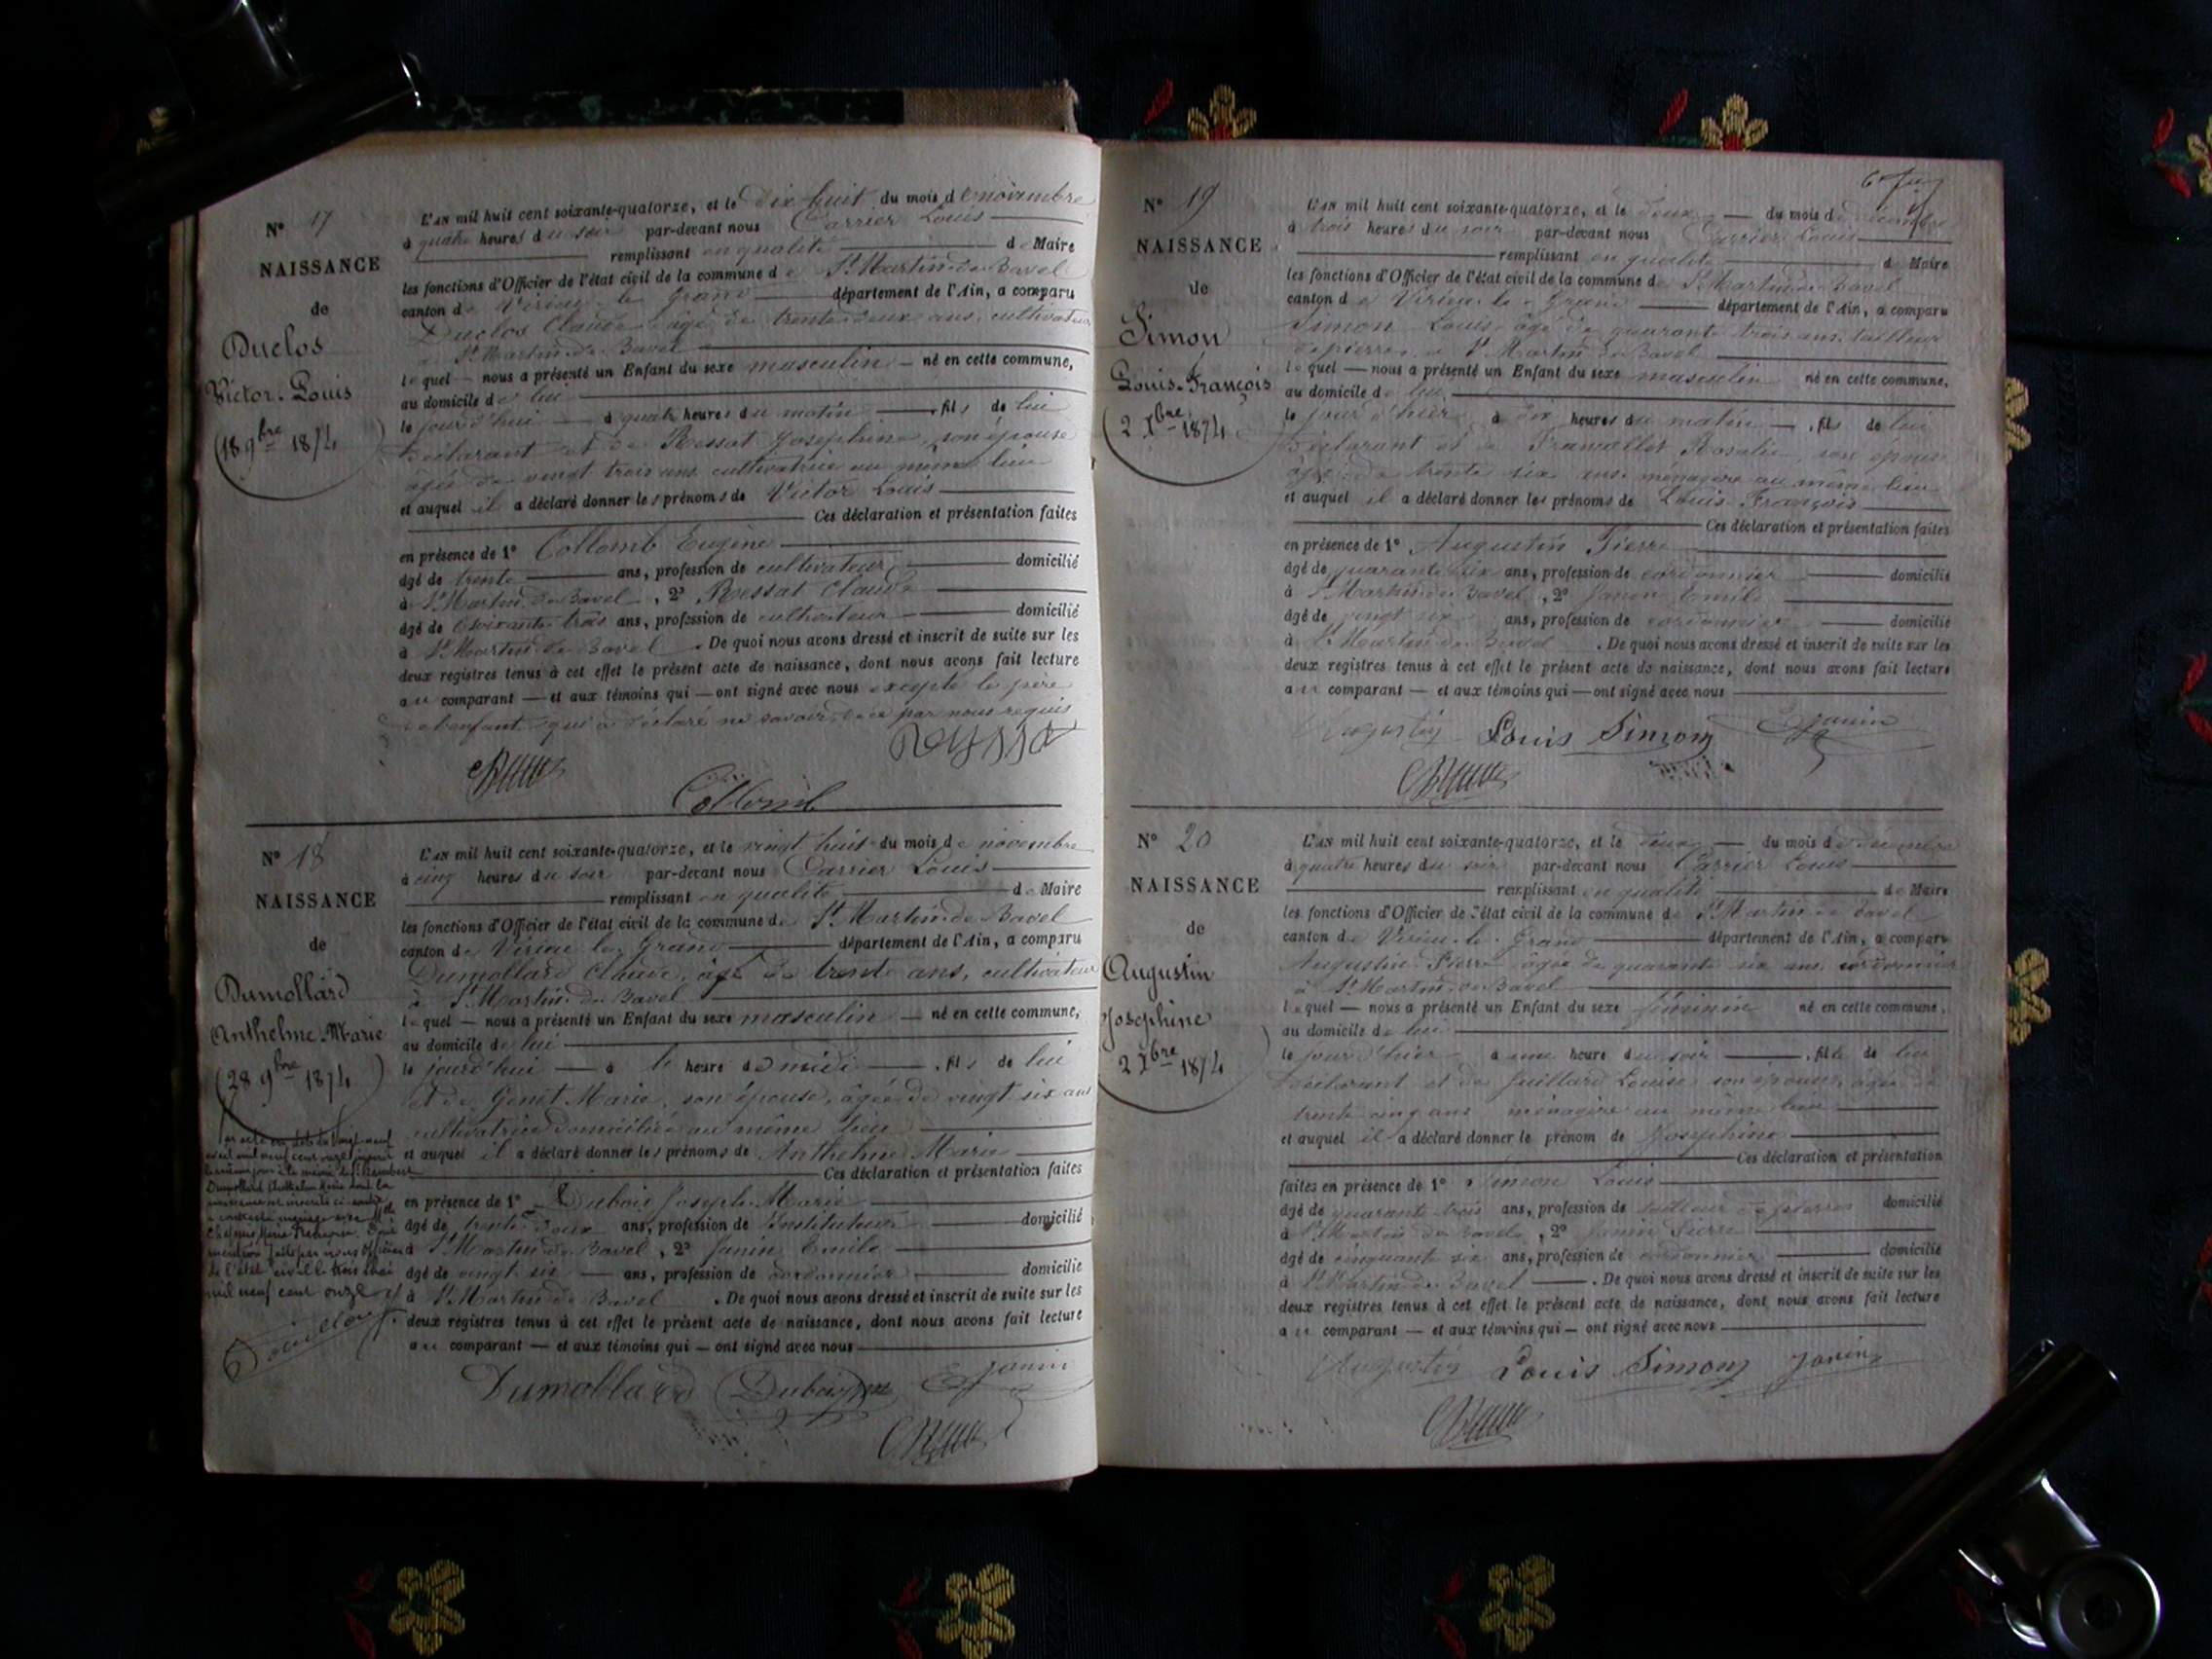 N° 17
NAISSANCE
de
Duclos
Victor-Louis
(18 9bre 1874)
L'AN mil huit cent soixante-quatorze, et le dix huit du mois de novembre
à quatre heures du soir par-devant nous Carrier Louis
remplissant en qualité de Maire
les fonctions d'Officier de l'état civil de la commune de St Martin de Bavel
canton de Virieu le Grand département de l'Ain, a comparu
Duclos Claude, âgé de trente deux ans, cultivateur
à St Martin de Bavel
lequel nous a présenté un Enfant du sexe masculin né en cette commune,
au domicile de lui
le jourd'hui à quatre heures du matin, fils de lui
déclarant et de Ressat Josephine son épouse
âgée de vingt trois ans cultivatrice au même lieu
et auquel il a déclaré donner les prénoms de Victor Louis
Ces déclaration et présentation faites
en présence de 1° Collomb Eugène
âgé de trente ans, profession de cultivateur domicilié
à St Martin de Bavel, 2° Ressat Claude
âgé de soixante trois ans, profession de cultivateur domicilié
à St Martin de Bavel. De quoi nous avons dressé et inscrit de suite sur les
deux registres tenus à cet effet le présent acte de naissance, dont nous avons fait lecture
au comparant et aux témoins qui ont signé avec nous excepté le père
de l'enfant qui a déclaré ne savoir de ce par nous requis
Collomb
N° 18
NAISSANCE
de
Dumollard
Anthelme-Marie
(28 9bre 1874)
L'AN mil huit cent soixante-quatorze, et le vingt huit du mois de novembre
à cinq heures du soir par-devant nous Carrier Louis
remplissant en qualité de Maire
les fonctions d'Officier de l'état civil de la commune de St Martin de Bavel
canton de Virieu le Grand département de l'Ain, a comparu
Dumollard Claude, âgé de trente ans, cultivateur
à St Martin de Bavel
lequel nous a présenté un Enfant du sexe masculin né en cette commune,
au domicile de lui
le jourd'hui à heure de midi, fils de lui
et de Genet Marie, son épouse, âgée de vingt six ans
cultivatrice domiciliée au même lieu
et auquel il a déclaré donner les prénoms de Anthelme Marie
Ces déclaration et présentation faites
en présence de 1° Dubois Joseph-Marie
âgé de trente deux ans, profession de Instituteur domicilié
à St Martin de Bavel, 2° Janin Emile
âgé de vingt six ans, profession de cordonnier domicilié
à St Martin de Bavel. De quoi nous avons dressé et inscrit de suite sur les
deux registres tenus à cet effet le présent acte de naissance, dont nous avons fait lecture
au comparant et aux témoins qui ont signé avec nous
Dumollard Dubois E Janin
Dumollard Anthelme Marie dont la
de l'état civil le trois mai
mil neuf cent onze
N° 19
NAISSANCE
de
Simon
Louis-François
(2 Xbre 1874)
L'AN mil huit cent soixante-quatorze, et le deux du mois de décembre
à trois heures du soir par-devant nous Carrier Louis
remplissant en qualité de Maire
les fonctions d'Officier de l'état civil de la commune de St Martin de Bavel
canton de Virieu-le-Grand département de l'Ain, a comparu
Simon Louis, âgé de quarante trois ans, tailleur
de pierres, à St Martin de Bavel
lequel nous a présenté un Enfant du sexe masculin né en cette commune,
au domicile de lui
le jour d'hier à dix heures du matin, fils de lui
déclarant et de Rosalie son épouse
âgée de trente six ans, ménagère au même lieu
et auquel il a déclaré donner les prénoms de Louis-François
Ces déclaration et présentation faites
en présence de 1° Augustin Pierre
âgé de quarante six ans, profession de cordonnier domicilié
à St Martin de Bavel, 2° Janin Emile
âgé de vingt six ans, profession de cordonnier domicilié
à St Martin de Bavel. De quoi nous avons dressé et inscrit de suite sur les
deux registres tenus à cet effet le présent acte de naissance, dont nous avons fait lecture
au comparant et aux témoins qui ont signé avec nous
Augustin Louis Simon E Janin
N° 20
NAISSANCE
de
Augustin
Josephine
2 Xbre 1874
L'AN mil huit cent soixante-quatorze, et le deux du mois de décembre
à quatre heures du soir par-devant nous Carrier Louis
remplissant en qualité de Maire
les fonctions d'Officier de l'état civil de la commune de St Martin de Bavel
canton de Virieu-le-Grand département de l'Ain, a comparu
Augustin Pierre âgé de quarante six ans, cordonnier
à St Martin de Bavel
lequel nous a présenté un Enfant du sexe féminin né en cette commune,
au domicile de lui
le jour d'hier à une heure du soir, fille de lui
déclarant et de Juillard Louise son épouse, âgée de
trente cinq ans ménagère au même lieu
et auquel il a déclaré donner le prénom de Josephine
Ces déclaration et présentation
faites en présence de 1° Simon Louis
âgé de quarante trois ans, profession de tailleur de pierres domicilié
à St Martin de Bavel, 2° Janin Pierre
âgé de cinquante six ans, profession de cordonnier domicilié
à St Martin de Bavel. De quoi nous avons dressé et inscrit de suite sur les
deux registres tenus à cet effet le présent acte de naissance, dont nous avons fait lecture
au comparant et aux témoins qui ont signé avec nous
Augustin Louis Simon Janin